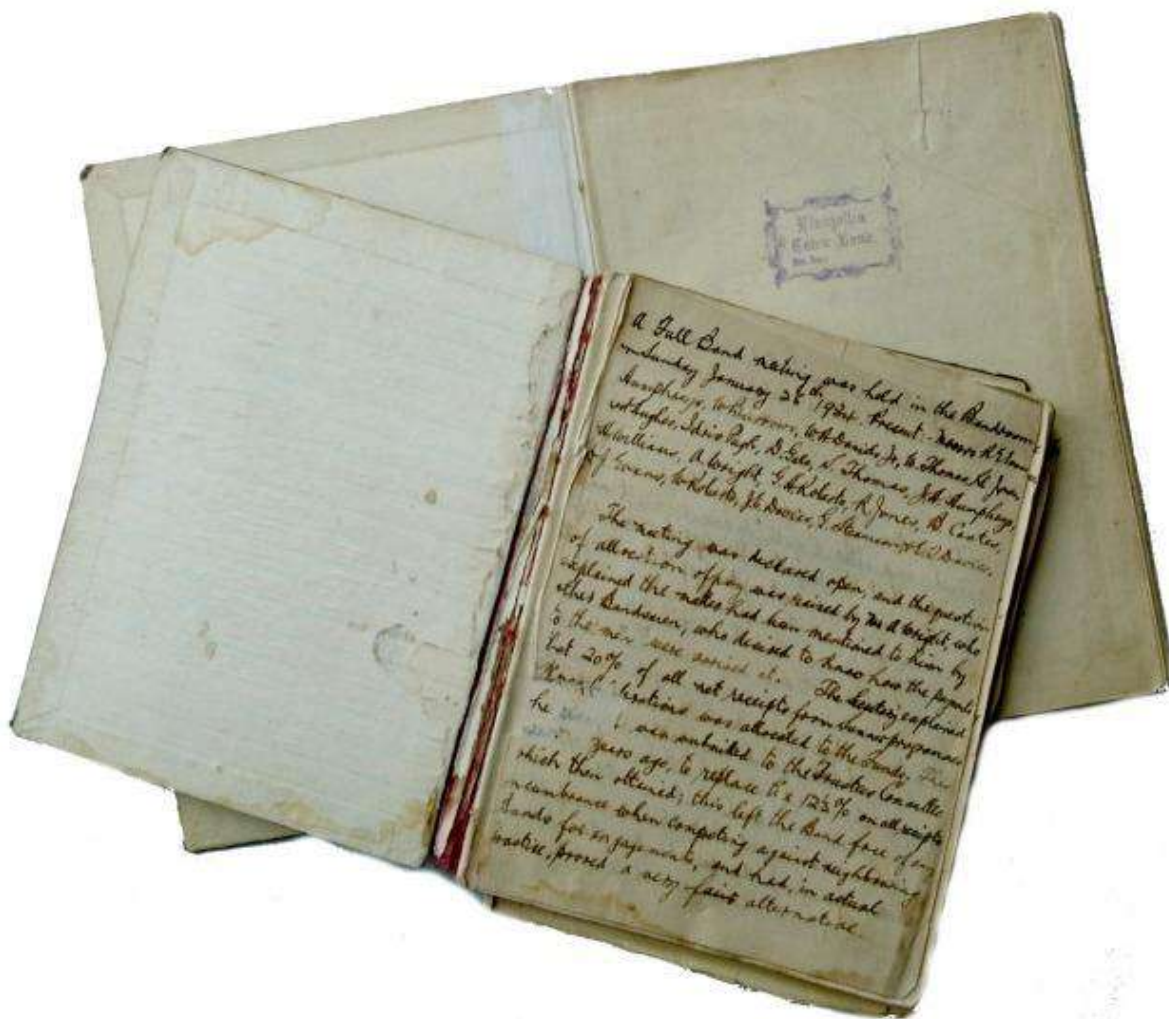 Llangollen
Town Band
A Full Band meeting was held in the Bandroom
on Sunday January 28th 1924. Present. Messrs
Humphreys, W. A. Davids, Jr, E. Thomas,
Hughes, Idris Pugh, D. N. Thomas, J. H. Humphreys,
Williams, A. Wright, G. H. Roberts, R. Jones, B. Coates,
J. Evans, W. Roberts, J. C. Davies, G. Davies.
The meeting was declared open, and the question
of allocation of pay was raised by Mr A Wright, who
explained the matter had been mentioned to him by
other Bandsmen, who desired to know how the payments
to the men were arrived at. The Secretary explained
that 20% of all net receipts from Summer programmes
was allocated to the Funds. This
he was submitted to the Trustees Committee
years ago, to replace the 12½% on all receipts
which then obtained; this left the Band free of any
incumbrance when competing against neighbouring
Bands for engagements, and had, in actual
practise, proved a very fair alternative.